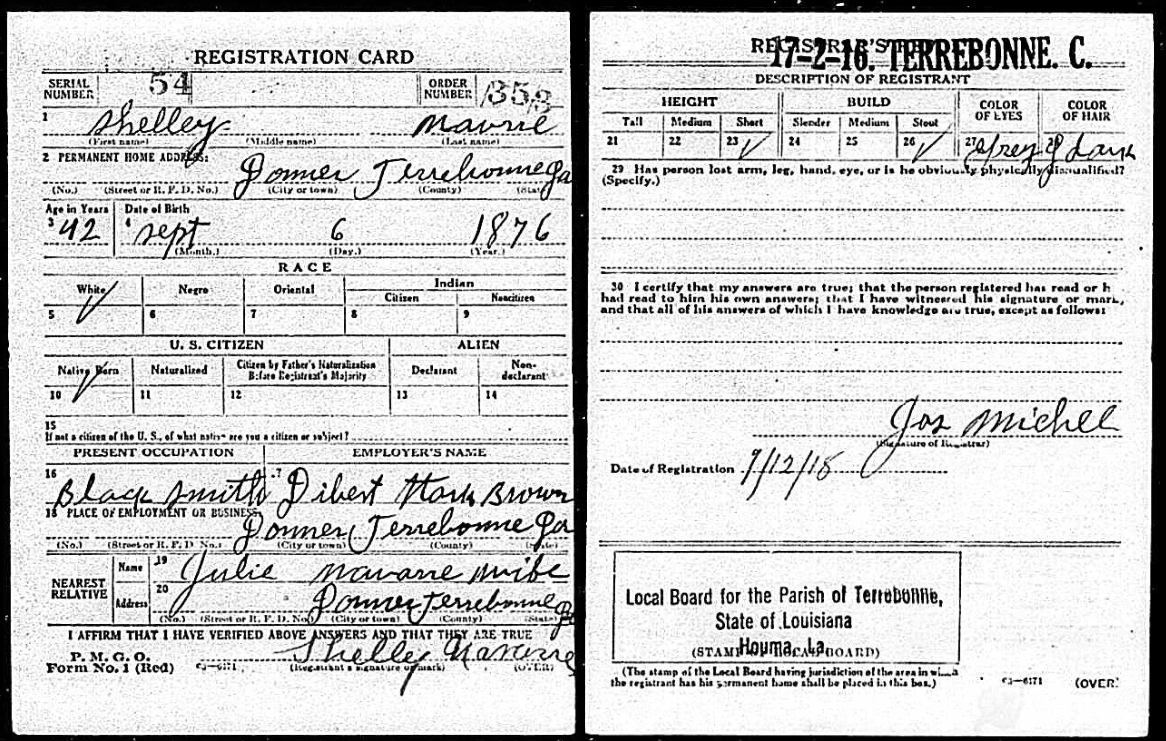 REGISTRATION CARD
SERIAL NUMBER 54 ORDER NUMBER 353
1 Shelley Navarre
(First name) (Middle name) (Last name)
2 PERMANENT HOME ADDRESS:
Donner Terrebonne La
(No.) (Street or R. F. D. No.) (City or town) (County) (State)
Age in Years Date of Birth
3 42 4 Sept 6 1876
(Month.) (Day.) (Year.)
RACE
White Negro Oriental Indian
Citizen Noncitizen
5 6 7 8 9
U. S. CITIZEN ALIEN
Native Born Naturalized Citizen by Father's Naturalization Before Registrant's Majority Declarant Non-declarant
10 11 12 13 14
15
If not a citizen of the U. S., of what nation are you a citizen or subject?
PRESENT OCCUPATION EMPLOYER'S NAME
16 Black Smith 17 Dibert Stark Brown
18 PLACE OF EMPLOYMENT OR BUSINESS:
Donner Terrebonne La
(No.) (Street or R. F. D. No.) (City or town) (County) (State)
NEAREST RELATIVE
Name 19 Julie Navarre wife
Address 20 Donner Terrebonne La
(No.) (Street or R. F. D. No.) (City or town) (County) (State)
I AFFIRM THAT I HAVE VERIFIED ABOVE ANSWERS AND THAT THEY ARE TRUE
P. M. G. O.
Form No. 1 (Red) 03—6171 Shelley Navarre
(Registrant's signature or mark) (OVER)
REGISTRAR'S
17-2-16. TERREBONNE. C.
DESCRIPTION OF REGISTRANT
HEIGHT BUILD COLOR OF EYES COLOR OF HAIR
Tall Medium Short Slender Medium Stout
21 22 23 24 25 26 27 grey 28 dark
29 Has person lost arm, leg, hand, eye, or is he obviously physically disqualified?
(Specify.)
30 I certify that my answers are true; that the person registered has read or h
had read to him his own answers; that I have witnessed his signature or mark,
and that all of his answers of which I have knowledge are true, except as follows:
Jos Michel
(Signature of Registrar)
Date of Registration 9/12/18
Local Board for the Parish of Terrebonne,
State of Louisiana
Houma, La.
(STAMP OF LOCAL BOARD)
(The stamp of the Local Board having jurisdiction of the area in which
the registrant has his permanent home shall be placed in this box.)
03—6171 (OVER)